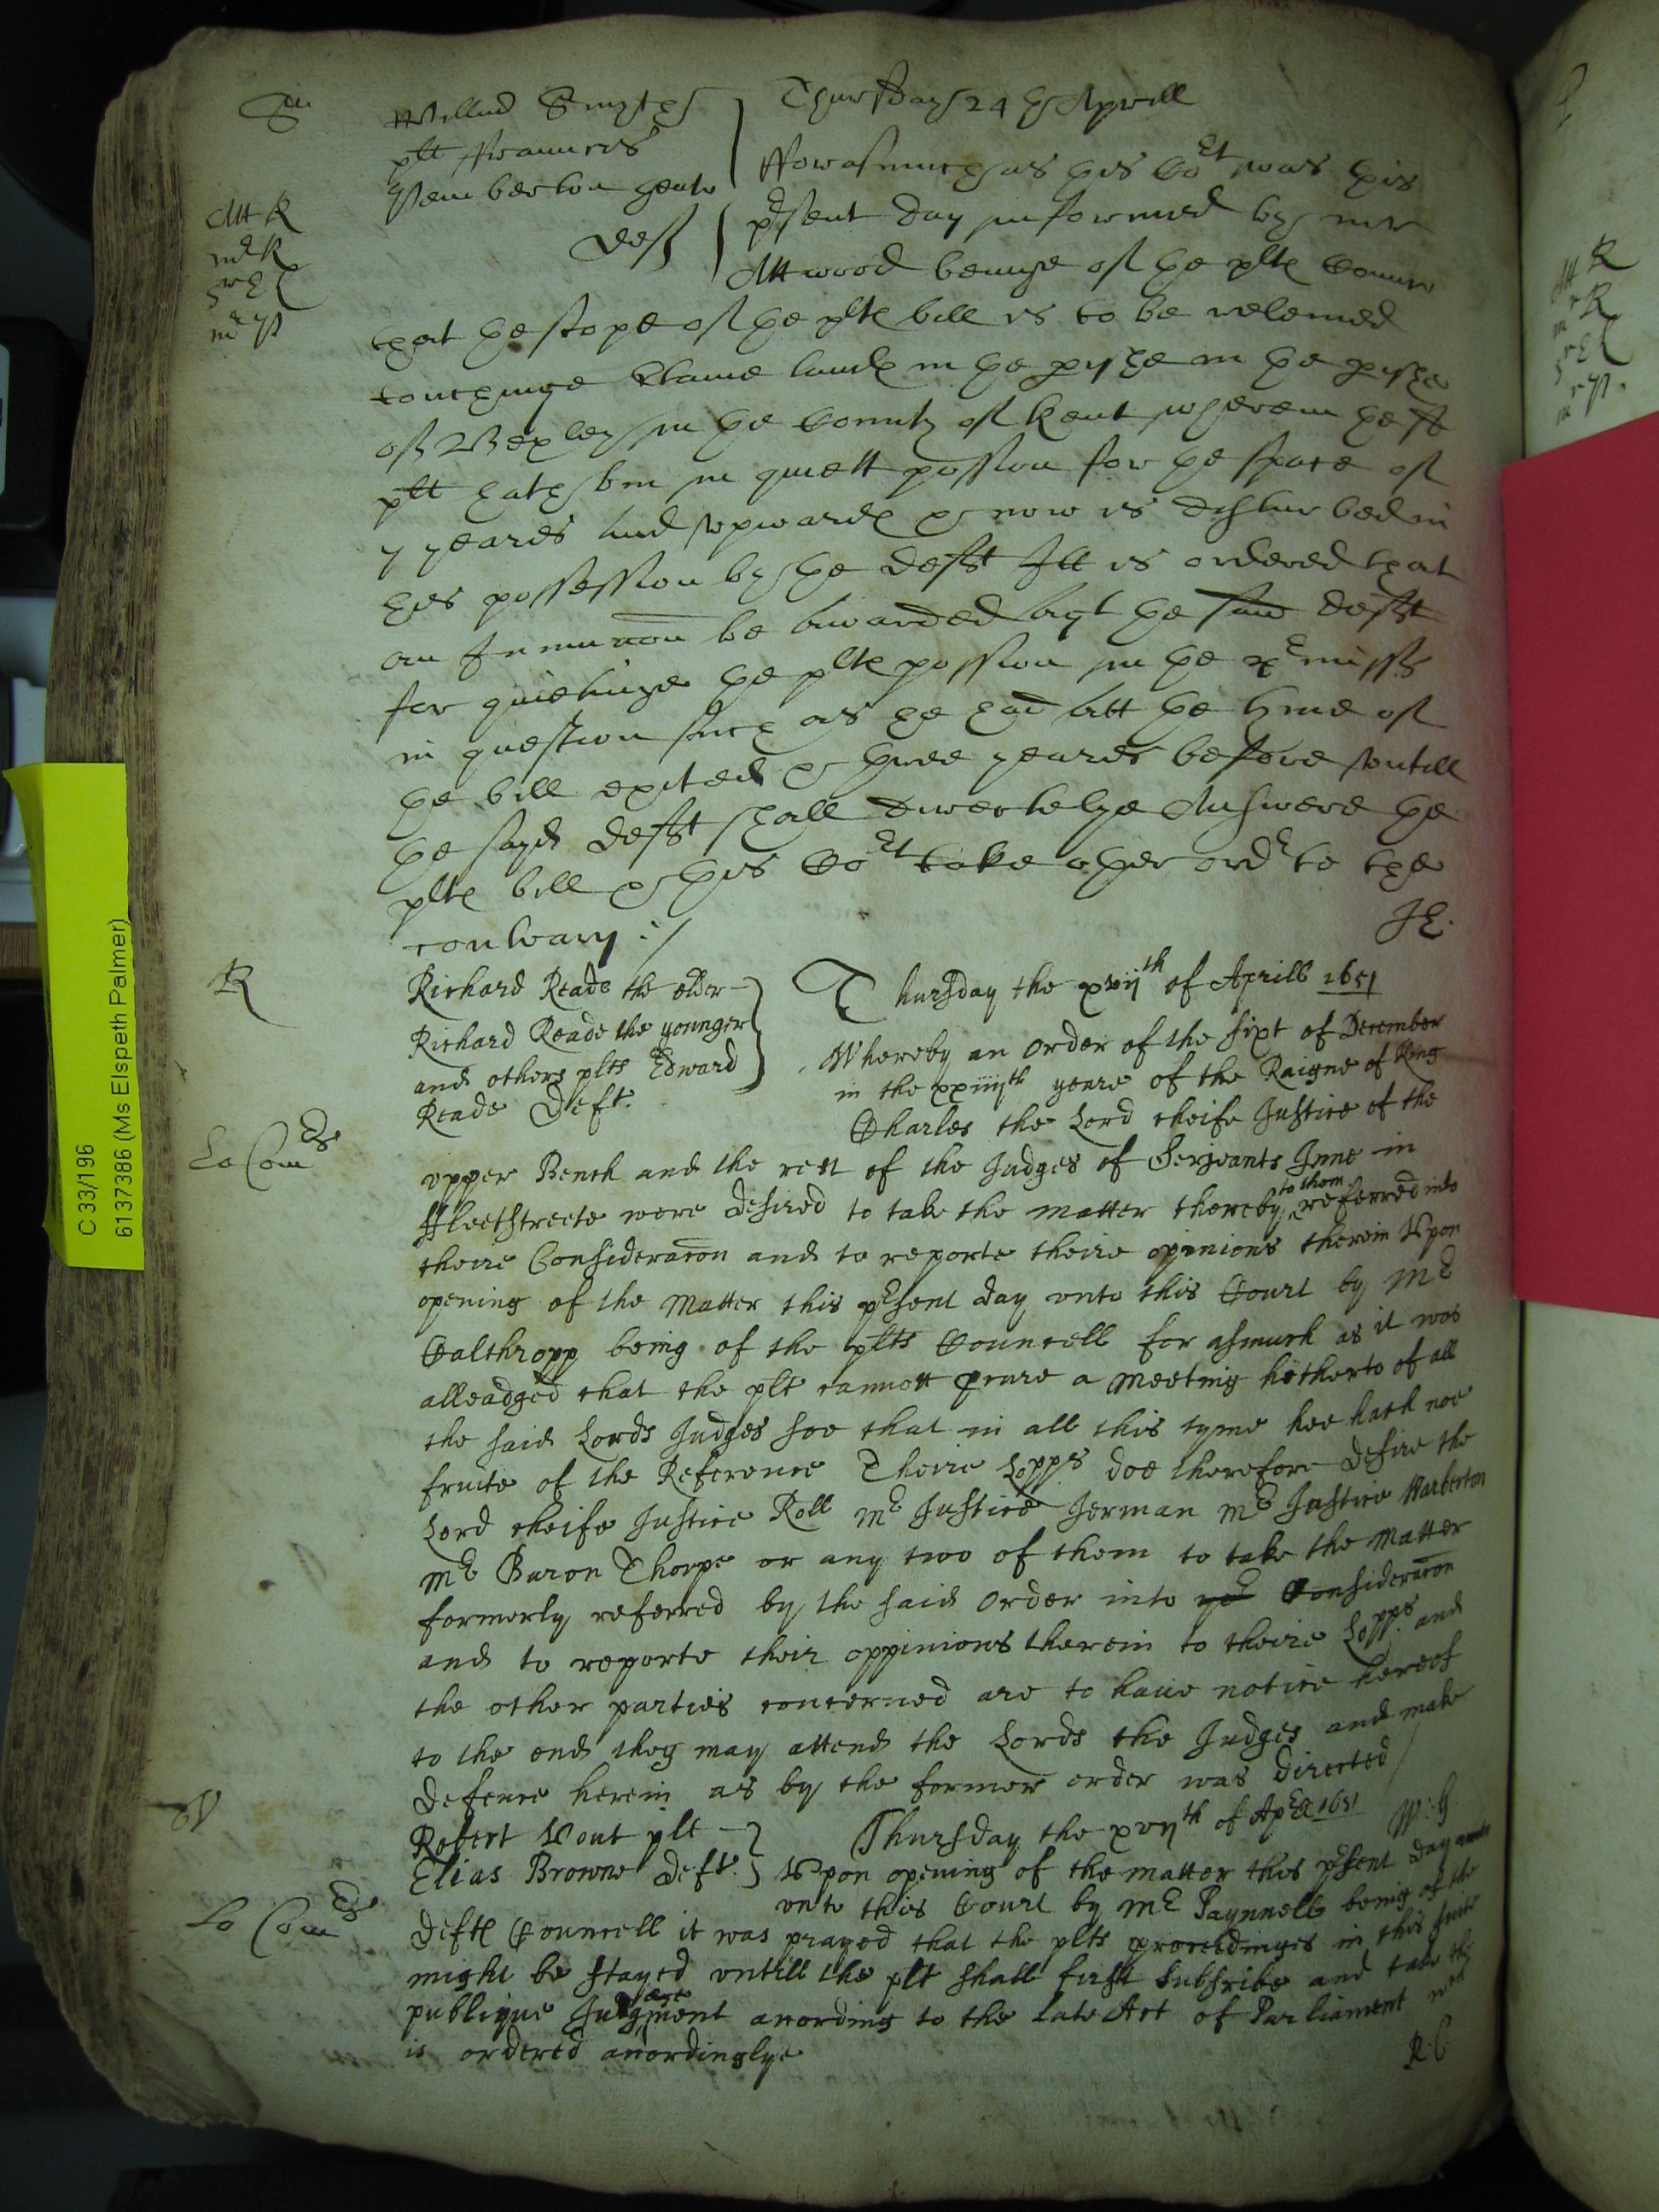 Willm̃ Smythes
plt Frauncis
Pemberton gentn
Deft
Thursday 24th Aprill
Forasmuch as this Cort was this
pñsent day informed by mr
Attwood beinge of the plts Counsl
that the scope of the plts bill is to be releived
touchinge
of Bexley in the County of Kent wherein the
plt hath bin in quiett possion for the space of
7 yeares and upwards & now is disturbed in
his possession by the deft Itt is ordered that
an Iniunccon be awarded agt the said deft
for quietinge the plts possion in the premisses
in question such as he had att the time of
the bill exited & three yeares before untill
the sayd deft shall directelye Answere the
plts bill & this Cort take other order to the
contrary :/
JH.
R
Richard Reade the elder
Richard Reade the younger
and others plts Edward
Reade Deft.
Thursday the xvijth of Aprill 1651
Whereby an order of the sixt of December
in the xxiiijth yeare of the Raigne of King
Charles the Lord cheife Justice of the
Lo Comrs
upper Bench and the rest of the Judges of Serjeants Inne in
ffleetstreete were desired to take the matter thereby to them referred into
theire Consideracon and to reporte theire opinions therein Upon
opening of the Matter this pr̃sent day unto this Court by Mr
Calthropp being of the plts Councell for asmuch as it was
alleadged that the plt cannott pcure a Meeting hitherto of all
the said Lords Judges soe that in all this tyme hee hath noe
fruite of the Reference Theire Lopps doe therefore desire the
Lord cheife Justice Roll Mr Justice Jerman Mr Justice Warberton
Mr Baron Thorpe or any two of them to take the Matter
formerly referred by the said order into Consideracon
and to reporte their oppinions therein to theire Lopps. and
the other parties concerned are to haue notice hereof
to the end they may attend the Lords the Judges and make
defence herein as by the former order was directed /
W:G
V
Robert Vout plt
Elias Browne Deft.
Thursday the xvijth of Aprill 1651
Upon opening of the matter this pr̃sent day
unto this Court by Mr Paynnell being of the
Lo Comrs
Defts Councell it was prayed that the plts proceedinges in this suite
might be stayed untill the plt shall first Subscribe and take the
publique Ingagement according to the Late Act of Parliament wch
is ordered accordinglye
R:C
C 33/196
6137386 (Ms Elspeth Palmer)